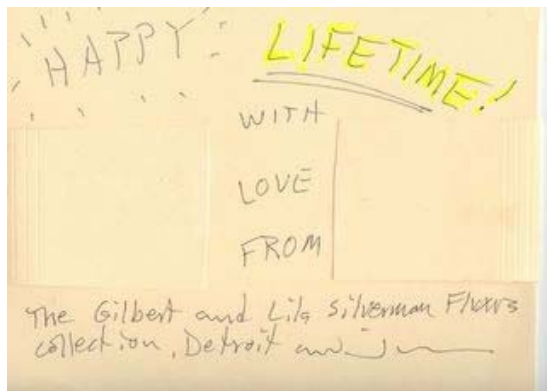 HAPPY: LIFETIME!
WITH
LOVE
FROM
The Gilbert and Lila Silverman Fluxus
collection, Detroit and